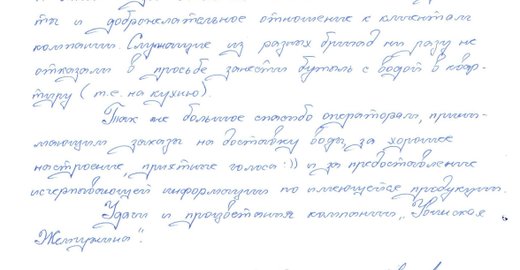 ты и доброжелательное отношение к клиентам
компании. Служащие из разных бригад ни разу не
отказали в просьбе занести бутыль с водой в квар-
тиру (т.е. на кухню).
Так же большое спасибо операторам, прини-
мающим заказы на доставку воды, за хорошее
настроение, приятные голоса :)) и за предоставление
исчерпывающей информации по имеющейся продукции.
Удачи и процветания компании „Уфимская
Жемчужина".